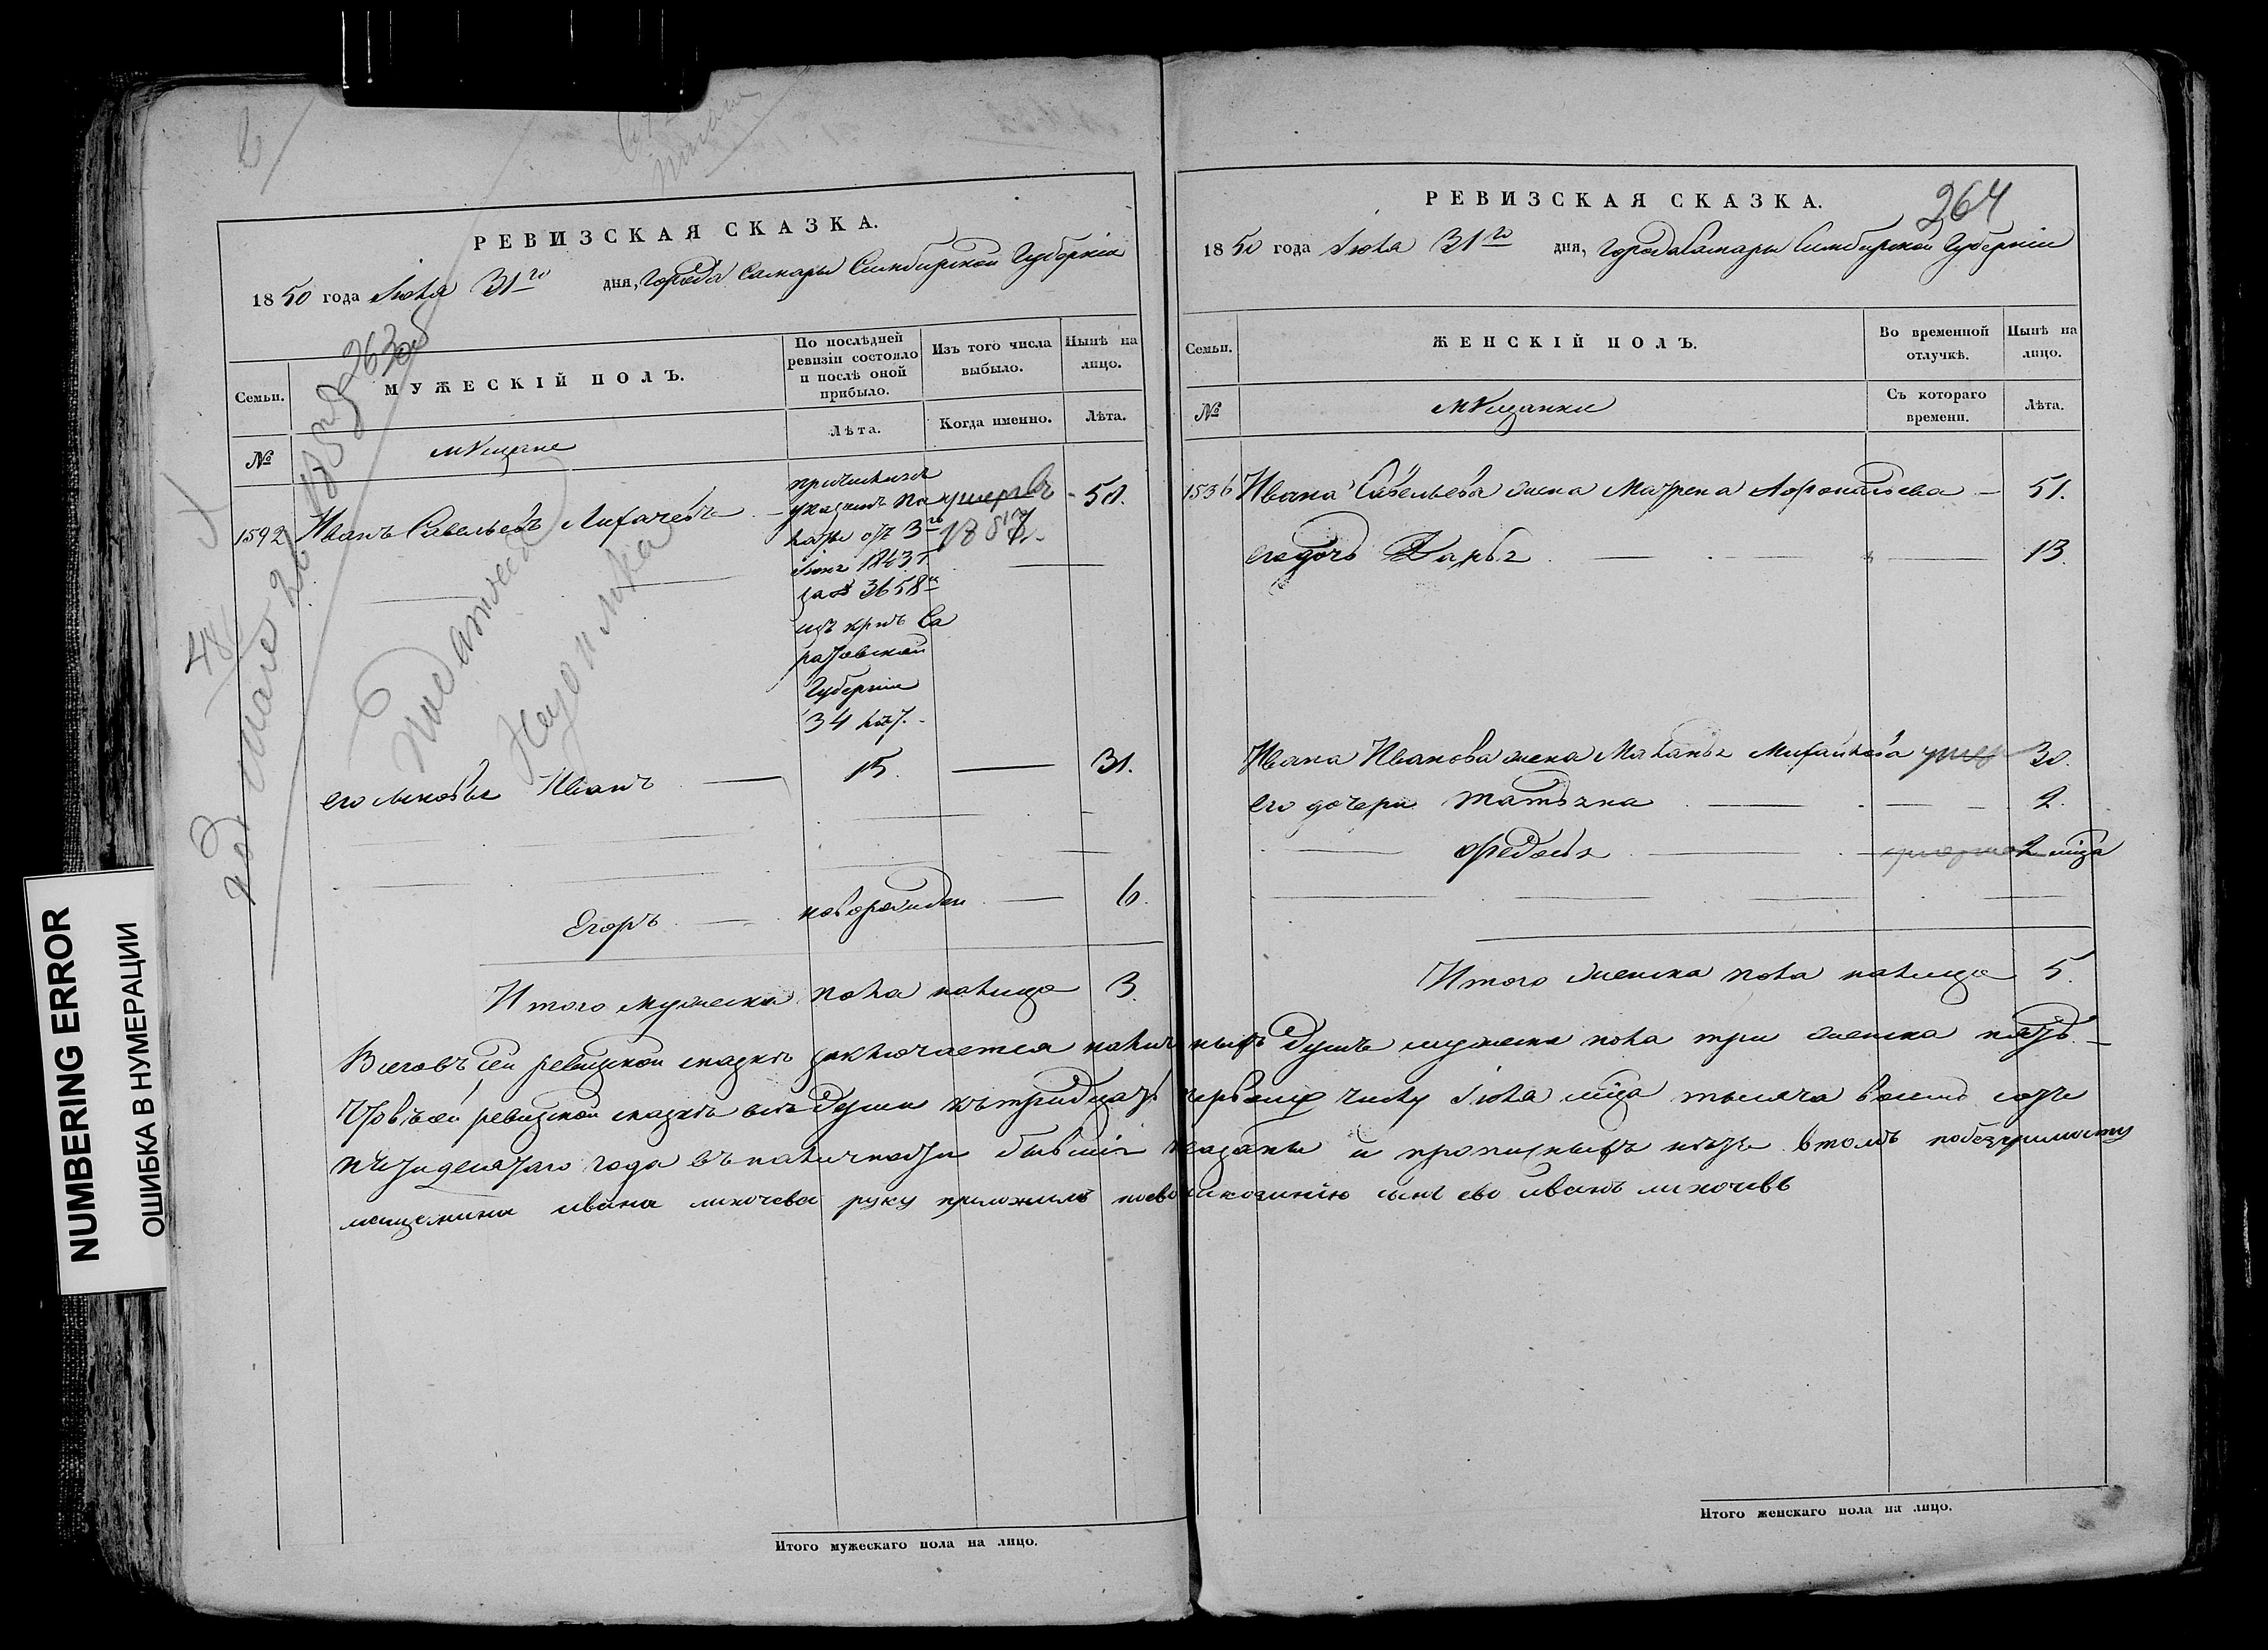 РЕВИЗСКАЯ СКАЗКА.
1850 года Іюля 31го дня, города Самары Симбирской Губерніи
263об
Семьи.
МУЖЕСКІЙ ПОЛЪ.
По послѣдней ревизіи состояло и послѣ оной прибыло.
Изъ того числа выбыло.
Нынѣ на лицо.
№
мѣщане
Лѣта.
Когда именно.
Лѣта.
1592 Иванъ Савельевъ Лихачевъ 50.
причислена
указомъ па
латы отъ 3го
Іюня 1843 г.
за № 3658м
изъ крнъ Са
ратовской
Губерніи
34 лѣт.
умеръ въ
1857
его сыновья Иванъ 15. 31.
Егоръ новорожден 6.
Итого мужеска пола налицо 3.
48
Податной
Недоимка
РЕВИЗСКАЯ СКАЗКА.
264
1850 года Іюля 31го дня, города Самары Симбирской Губерніи
Семьи.
ЖЕНСКІЙ ПОЛЪ.
Во временной отлучкѣ.
Нынѣ на лицо.
№
мѣщанки
Съ котораго времени.
Лѣта.
1536 Ивана Савельева жена Матрена Афонасьева 51.
его дочь Дарья 13.
Ивана Иванова жена Маланья Михайлова умер 30.
его дочери Татьяна 2.
Федосья 2 мца
Итого женска пола налицо 5.
Всего въ сей ревизской сказкѣ заключается наличныхъ душъ мужеска пола три женска пять.
Что въ сей ревизской сказкѣ всѣ души къ тридцать первому числу Іюля мца тысяча восемь сотъ
пятидесятаго года въ наличности бывшія показаны и прописныхъ нѣтъ въ томъ по безграмотству
мещенина ивана лихочева руку приложилъ сынъ ево иванъ лихочевъ
Итого мужескаго пола на лицо.
Итого женскаго пола на лицо.
NUMBERING ERROR
ОШИБКА В НУМЕРАЦИИ